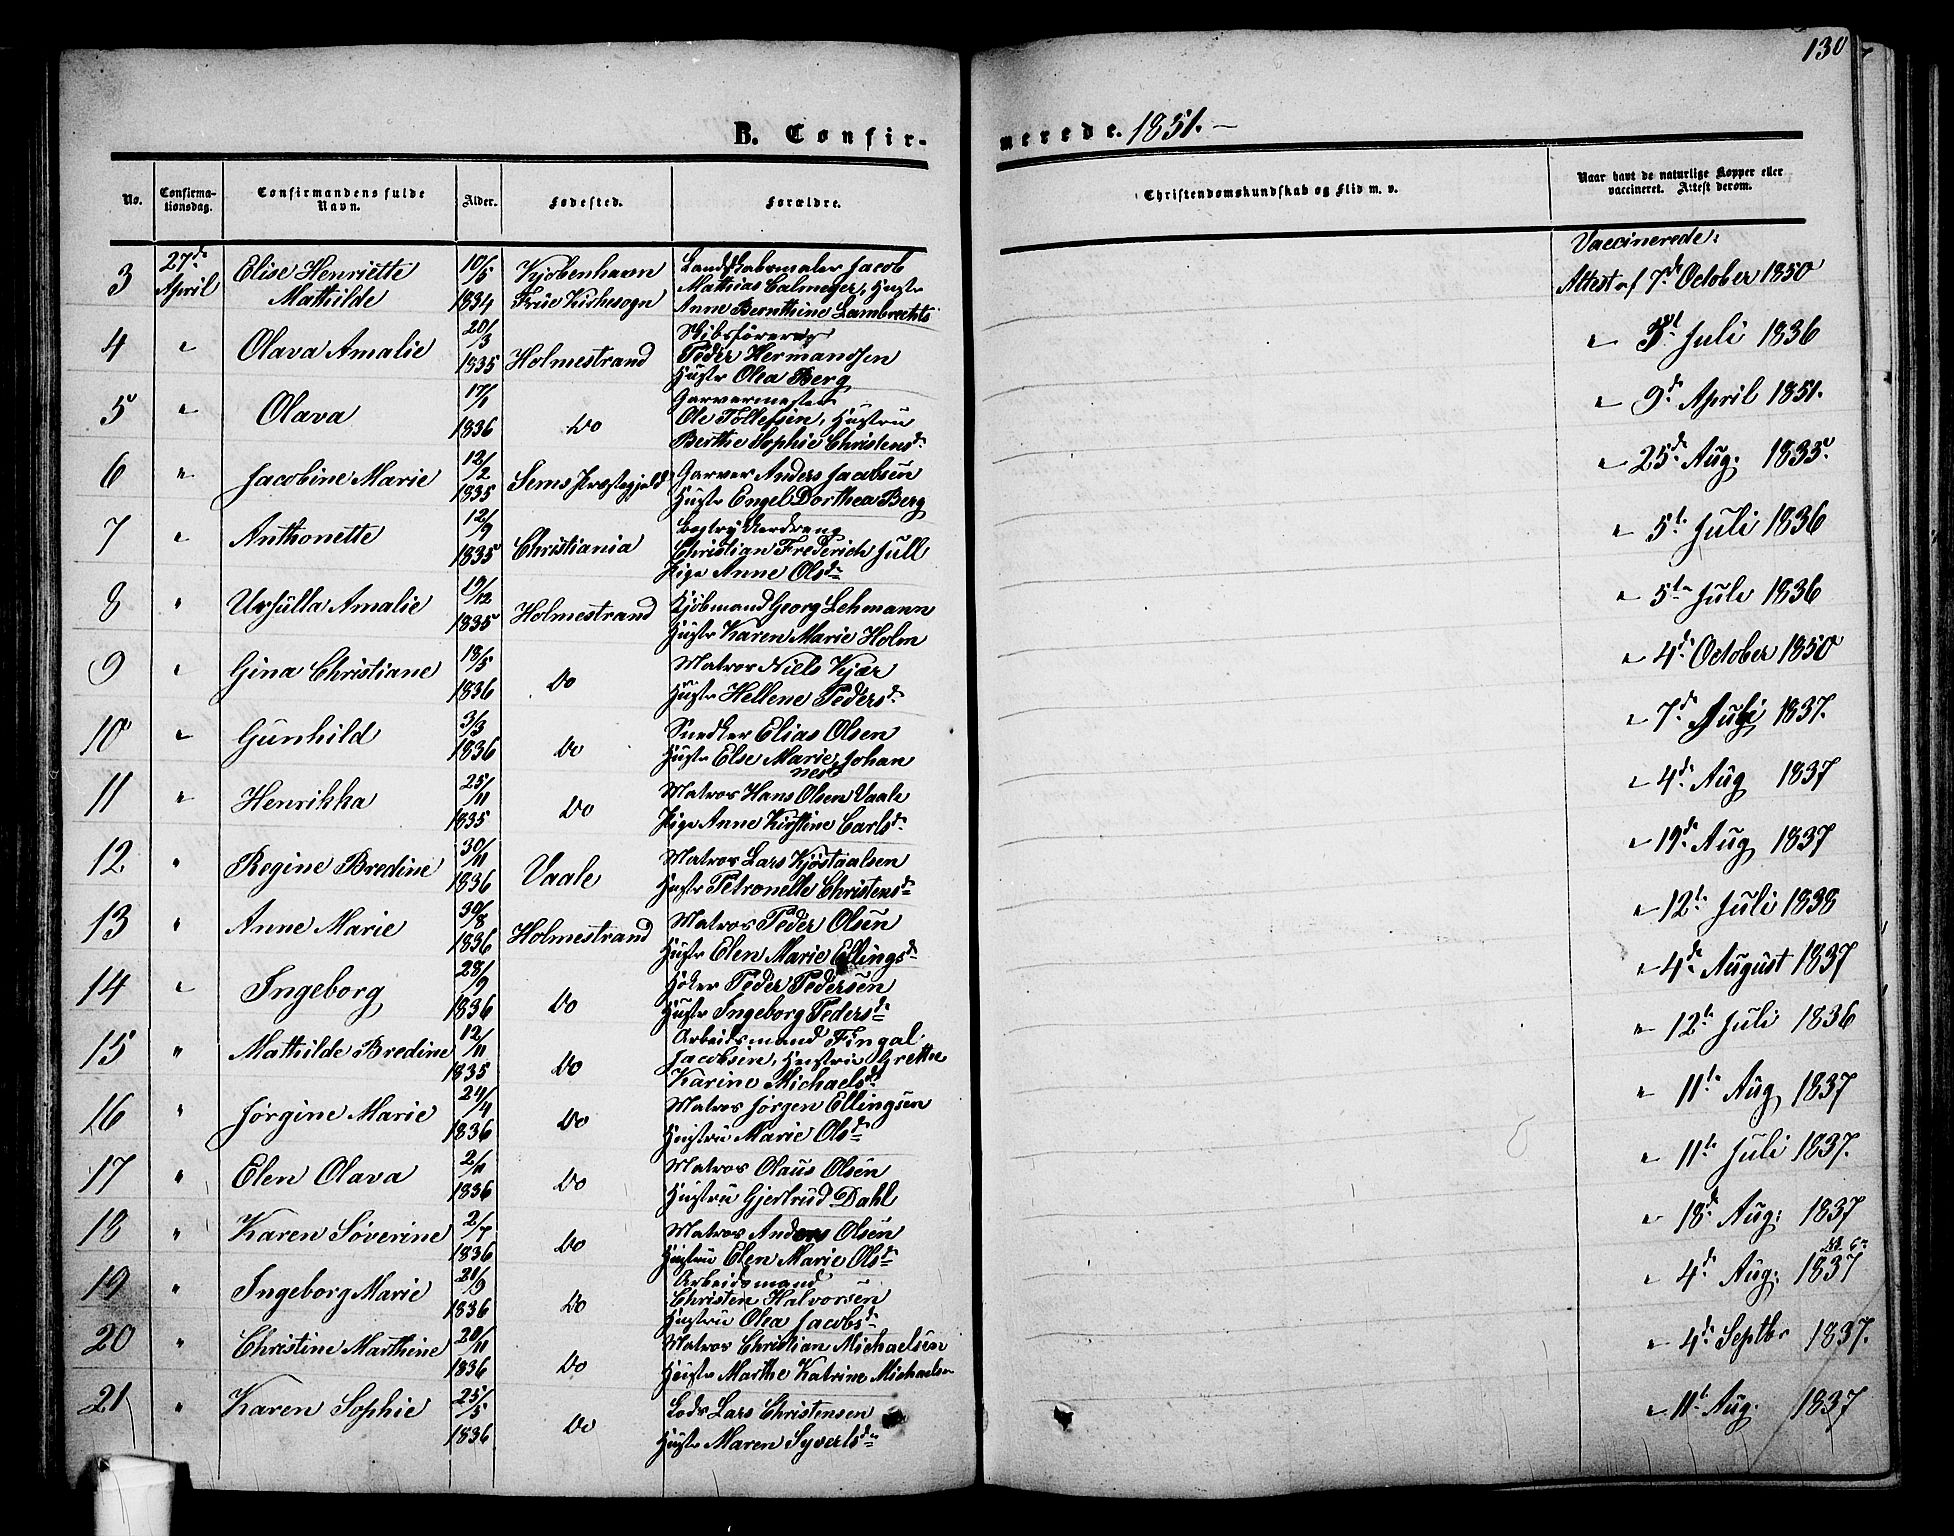 130
B. Confir-
merede. 1851.-
No.
Confirma-
tionsdag.
Confirmandens fulde
Navn.
Alder.
Fødested.
Forældre.
Christendomskundskab og Flid m. v.
Naar havt de naturlige Kopper eller
vaccineret. Attest derom.
Vaccinerede:
3 27de April Elise Henriette Mathilde 10/5 1834 Kjøbenhavn Frue Kirkesogn Landskabsmaler Jacob
Mathias Calmeyer, Hustr
Anne Bernthine Lambrechts
Attest af 7de October 1850
4 " Olava Amalie 20/3 1835 Holmestrand Skibsfører
Peder Hermandsen
Hustr Olea Berg
" Juli 1836
5 " Olava 17/1 1836 Do Garvermester
Ole Tollefsen, Hustru
Berthe Sophie Christensd
" 9de April 1851.
6 " Jacobine Marie 12/2 1835 Sems Præstegjeld Garver Anders Jacobsen
Hustr Engel Dorthea Berg
" 25de Aug: 1835
7 " Anthonette 12/9 1835 Christiania Bogtrykkerdreng
Christian Frederich Jull
Pige Anne Olsd
" 5te Juli 1836
8 " Ursulla Amalie 19/12 1835 Holmestrand Kjøbmand Georg Lehmann
Hustr Karen Marie Holm
" 5te Juli 1836
9 " Gina Christiane 18/5 1836 Do Matros Niels Kjær
Hustr Hellene Pedersd
" 4de October 1850
10 " Gunhild 3/3 1836 Do Snedker Elias Olsen
Hustr Else Marie Johan
nesd
" 7de Juli 1837.
11 " Henrikka 25/11 1835 Do Matros Hans Olsen Vaale
Pige Anne Kirstine Carlsd
" 4de Aug 1837
12 " Regine Bredine 30/11 1836 Vaale Matros Lars Kjøstaalsen
Hustr Petronelle Christensd
" 19de Aug 1837
13 " Anne Marie 30/8 1836 Holmestrand Matros Peder Olsen
Hustr Elen Marie Ellingsd
" 12te Juli 1838
14 " Ingeborg 28/9 1836 Do Høker Peder Pedersen
Hustr Ingeborg Pedersd
" 4de August 1837
15 " Mathilde Bredine 12/11 1835 Do Arbeidsmand Fingal
Jacobsen, Hustru Grethe
Karine Michaelsd
" 12te Juli 1836
16 " Jørgine Marie 24/4 1836 Do Matros Jørgen Ellingsen
Hustru Marie Olsd
" 11te Aug 1837
17 " Elen Olava 2/11 1836 Do Matros Olaus Olsen
Hustru Gjertrud Dahl
" 11te Juli 1837.
18 " Karen Søverine 2/7 1836 Do Matros Anders Olsen
Hustru Elen Marie Olsd
" 18de Aug: 1837
19 " Ingeborg Marie 21/9 1836 Do Arbeidsmand
Christen Halvorsen
Hustru Olea Jacobsd
" 4de Aug: 1837
20 " Christine Marthine 20/11 1836 Do Matros Christian Michaelsen
Hustr Marthe Katrine Michaelsn
" 4de Septbr 1837.
21 " Karen Sophie 25/5 1836 Do Lods Lars Christensen
Hustr Maren Syverlsd
" 11te Aug. 1837